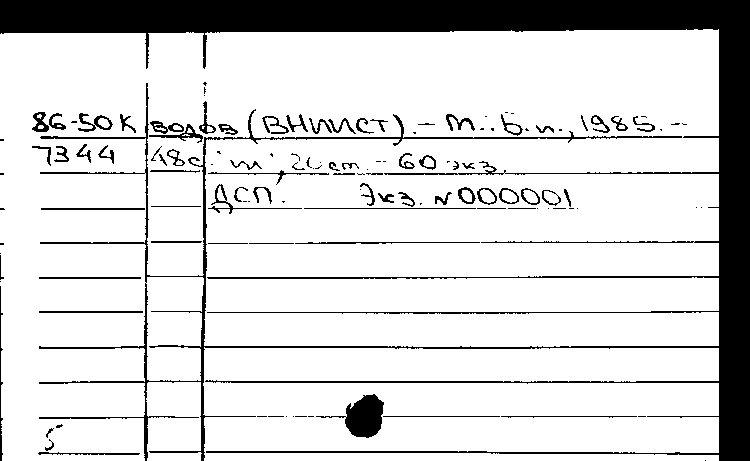 86-50К водов (ВНИИСТ). – М.: Б.и., 1985. –
7344 48с.: ил; 20см. – 60 экз.
ДСП. Экз. №000001
5